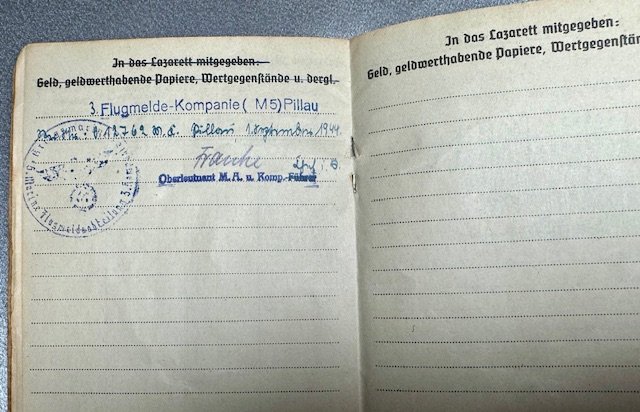 In das Lazarett mitgegeben:
Geld, geldwerthabende Papiere, Wertgegenstände u. dergl.
3. Flugmelde-Kompanie (M5) Pillau
12762 Pillau, 1944
Franke
Oberleutnant M.A. u. Komp.-Führer
In das Lazarett mitgegeben:
Geld, geldwerthabende Papiere, Wertgegenstän